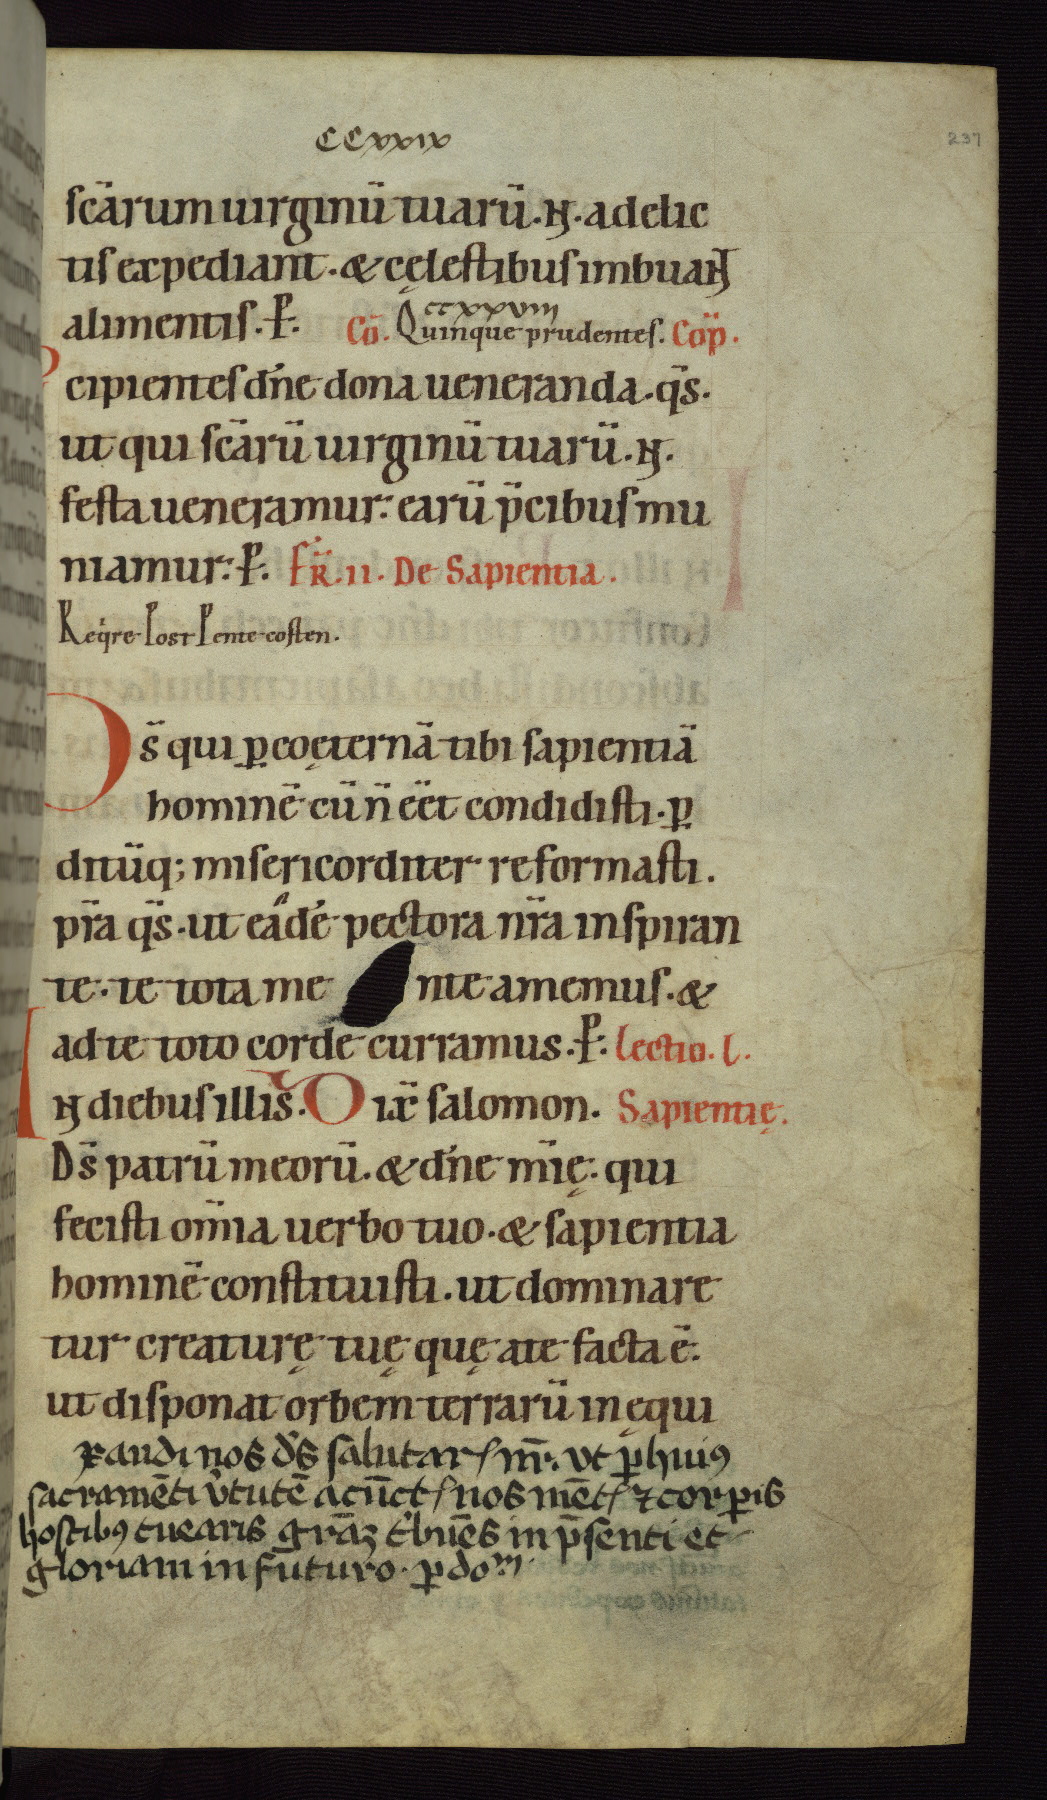 CCxxix
237
scārum uirginū tuarū. N. a delic
tis expediant. & cęlestibus imbuant
alimentis. P.
ccxxviiii
Cō. Quinque prudentes. Cōp.
P
cipientes dn̄e dona ueneranda. q̄s.
ut qui scārū uirginū tuarū. N.
festa ueneramur: earū p̄cibus mu
niamur: P. FR̄. II. De Sapientia.
Req̇re Post Pente costen.
Ds̄ qui ꝑ coęternā tibi sapientiā
hominē cū n̄ eēt condidisti. ꝑ
ditūq; misericorditer reformasti.
pr̄a q̄s. ut eādē pectora nr̄a inspiran
te. te tota me nte amemus. &
ad te toto corde curramus. P. Lectio. L.
IN diebus illis. Dix̄ salomon. Sapientię.
Ds̄ patrū meorū. & dn̄e m̄ię. qui
fecisti om̄ia uerbo tuo. & sapientia
hominē constituisti. ut dominare
tur creaturę tuę quę a te facta ē.
ut disponat orbem terrarū in ęqui
xaudi nos ds̄ salutar nr̄. vt ꝑ huiꝰ
sacramēti v̄tutē a cūct nos mēt ⁊ corꝑis
hostibꝰ tuearis grāz t̄buēs in p̄senti et
gloriam in futuro. ꝑ doᵐ